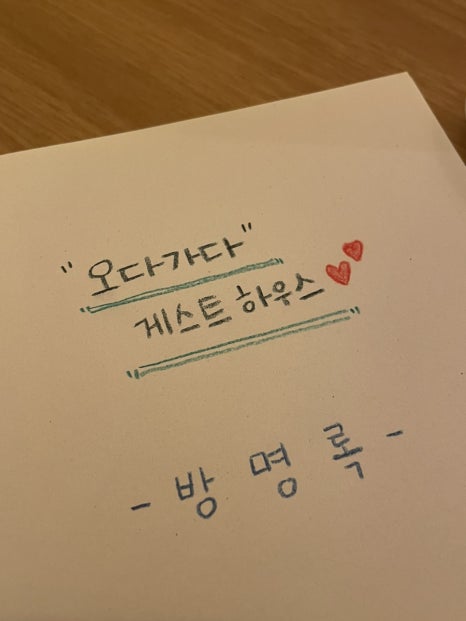 "오다가다"
게스트 하우스
- 방 명 록 -